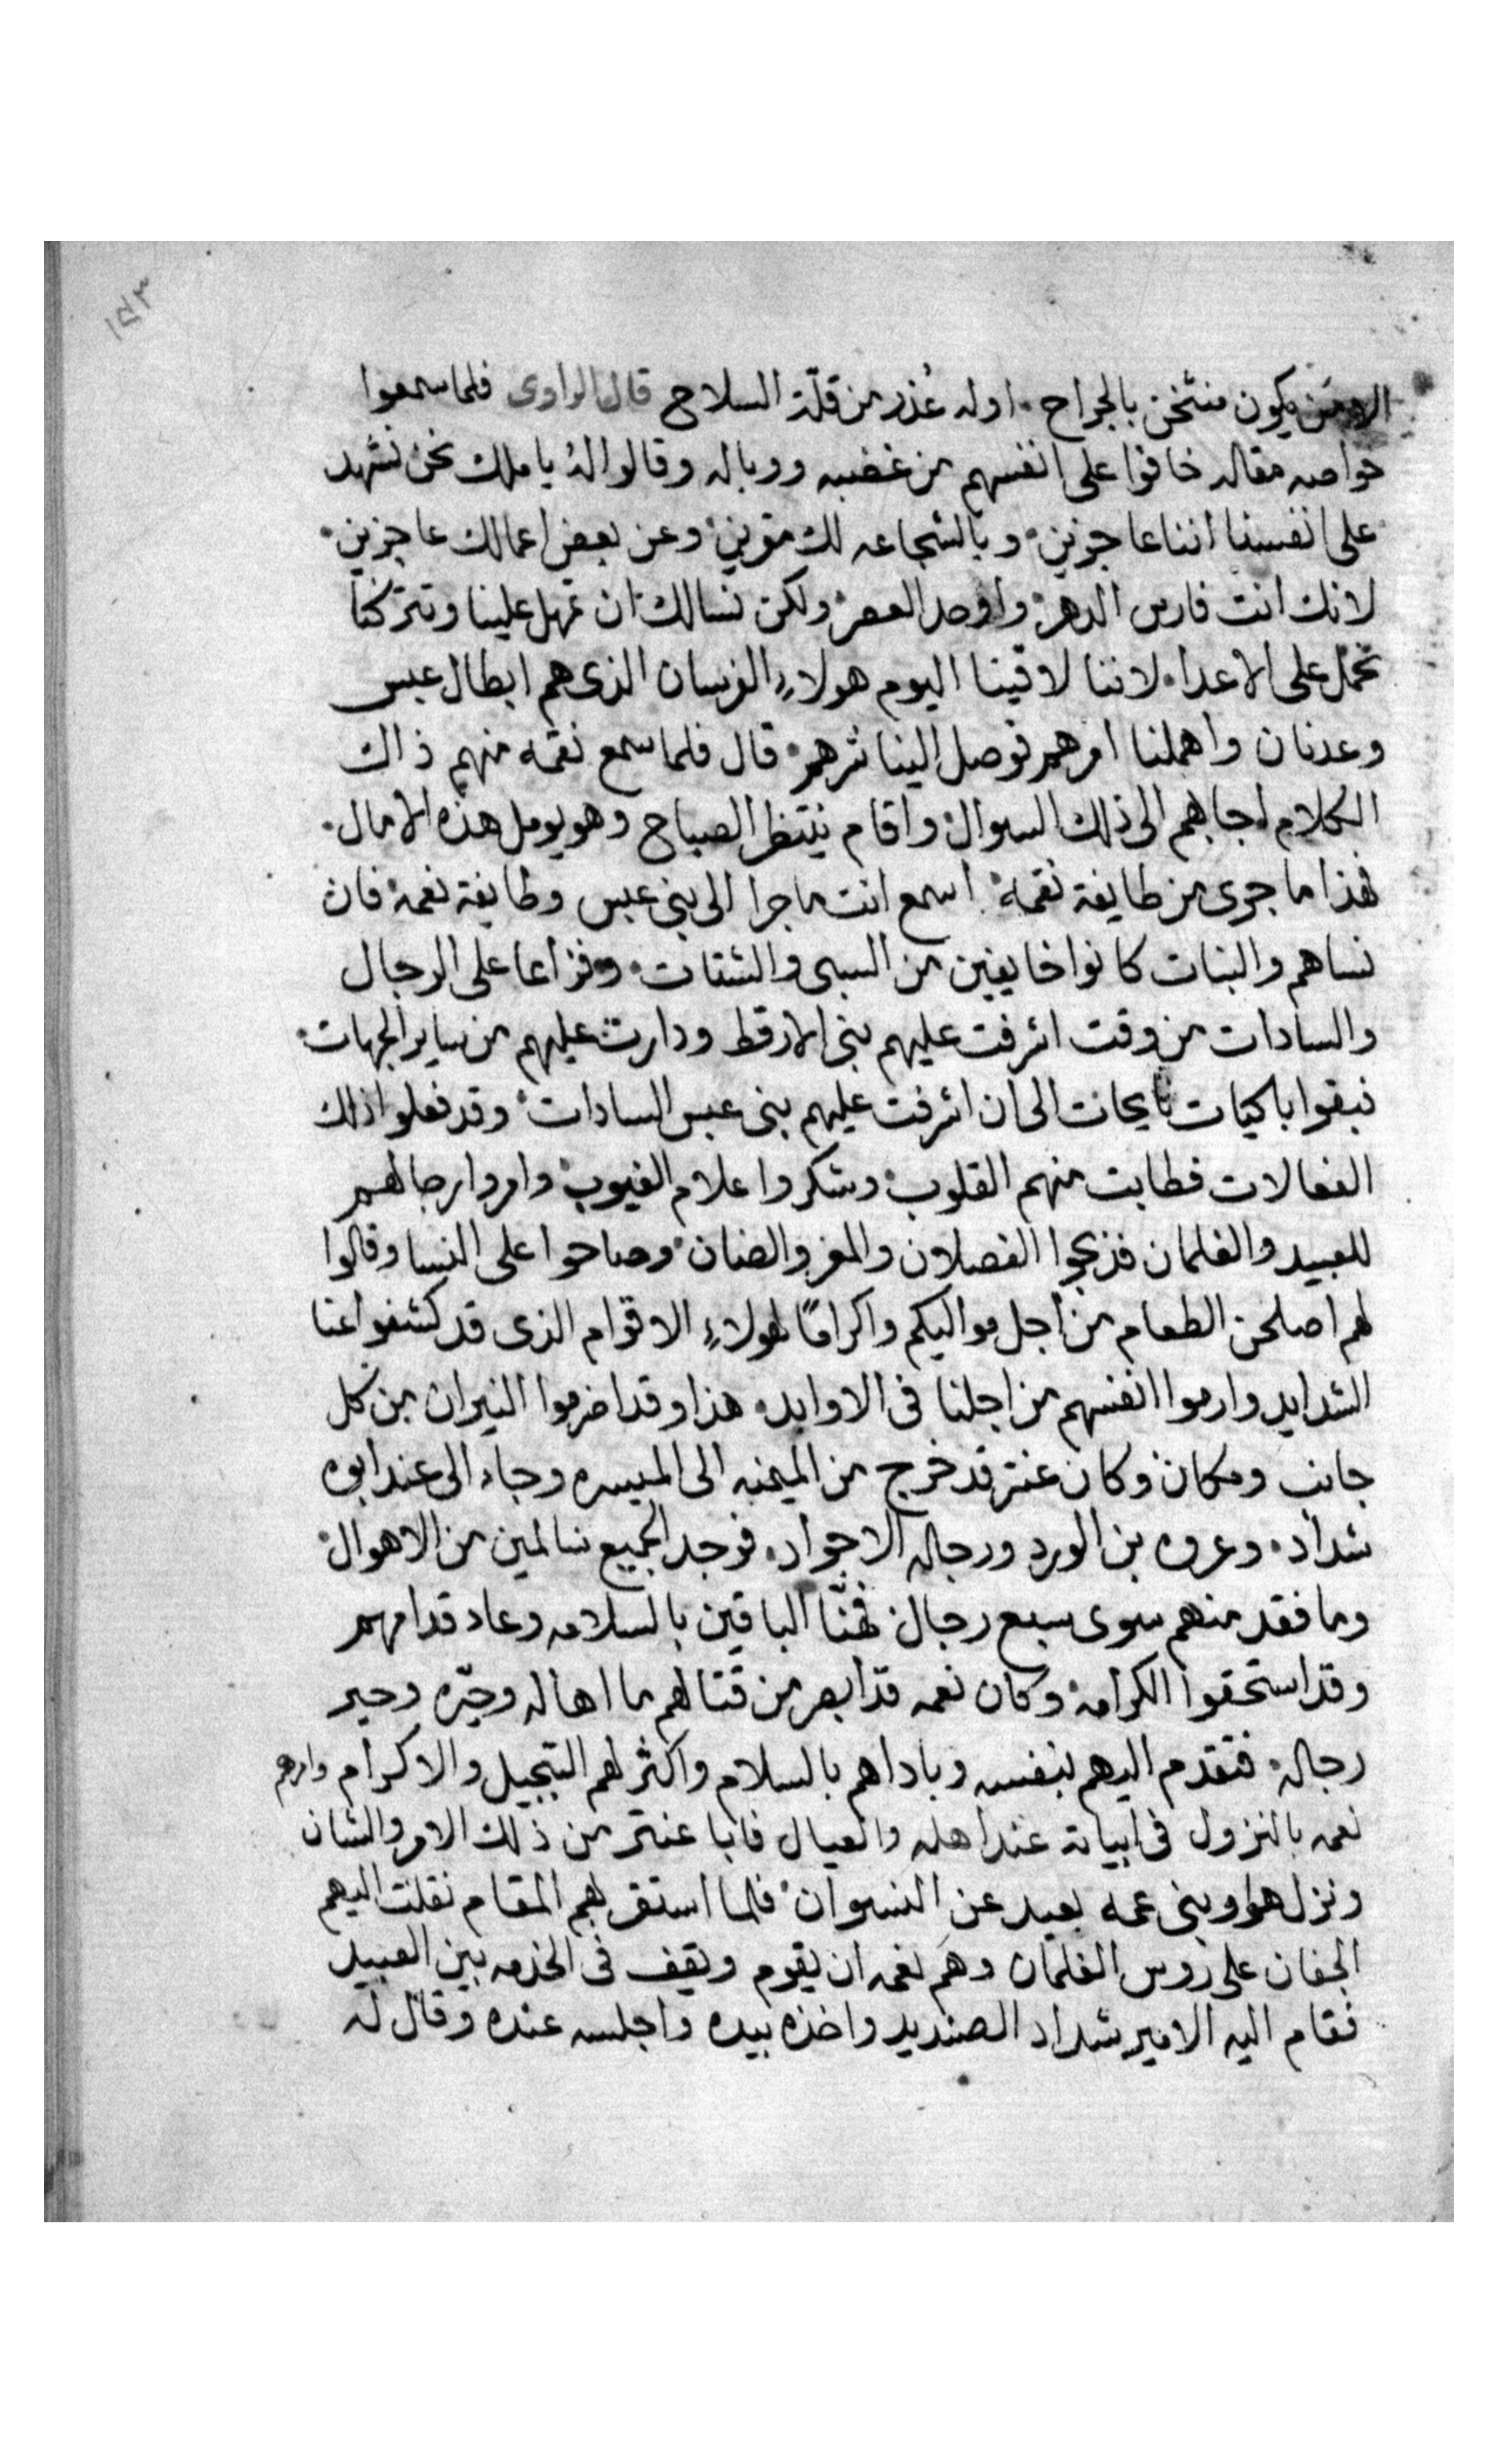 ١٥٣
الا من يكون منثخن بالجراح. اوله عُذر من قلّة السلاح قال الراوى فلما سمعوا
خواصه مقاله خافوا على انفسهم من غضبه ووباله وقالوا لهُ يا ملك نحن نشهد
على انفسنا اننا عاجزين. وبالشجاعه لك مقرين. وعن بعض اعمالك عاجزين.
لانك انت فارس الدهر. واوحد العصر. ولكن نسالك ان تمهل علينا وتتركنا
نحمل على الاعدا. لاننا لاقينا اليوم هولاءِ الفرسان الذى هم ابطال عبس
وعدنان واهملنا امرهم فوصل الينا شرهم. قال فلما سمع نقمه منهم ذاك
الكلام اجابهم الى ذلك السوال. واقام ينتظر الصباح وهو يومل هذه الامال.
فهذا ما جرى من طايفة نقمة. اسمع انت ما جرا الى بنى عبس وطايفة نعمة فان
نساهم والبنات كانوا خايفين من السبى والشتات. وفزاعا على الرجال
والسادات من وقت اشرفت عليهم بنى الارقط ودارت عليهم من ساير الجهات.
فبقوا باكيات نايحات الى ان اشرفت عليهم بنى عبس السادات. وقد فعلوا ذلك
الفعالات فطابت منهم القلوب. وشكروا علام الغيوب. وامروا رجالهم
للعبيد والغلمان فزبحوا الفصلان والمعز والضان. وصاحوا على النسا وقالوا
لهم اصلحن الطعام من اجل مواليكم واكرامًا لهولاءِ الاقوام الذى قد كشفوا عنا
الشدايد وارموا انفسهم من اجلنا فى الاوابد. هذا وقد اضرموا النيران من كل
جانب ومكان. وكان عنتر قد خرج من الميمنه الى الميسره وجاء الى عند ابوه
شداد. وعروه بن الورد ورجاله الاجواد. فوجد الجميع سالمين من الاهوال.
وما فقد منهم سوى سبع رجال. فهنّا الباقين بالسلامه وعاد قدامهم
وقد استحقوا الكرامة. وكان نعمه قد ابصر من قتالهم ما اهاله وحيّره وحير
رجاله. فتقدم اليهم بنفسه وباداهم بالسلام واكثر لهم التبجيل والاكرام وامرهم
نعمه بالنزول فى ابياته عند اهله والعيال فابا عنتر من ذلك الامر والشان
ونزل هو وبنى عمه بعيد عن النسوان. فلما استقر بهم المقام نقلت اليهم
الجفان على روس الغلمان وهَم نعمه ان يقوم ويقف فى الخدمه بين العبيد
فقام اليه الامير شداد الصنديد واخذه بيده واجلسه عنده وقال له